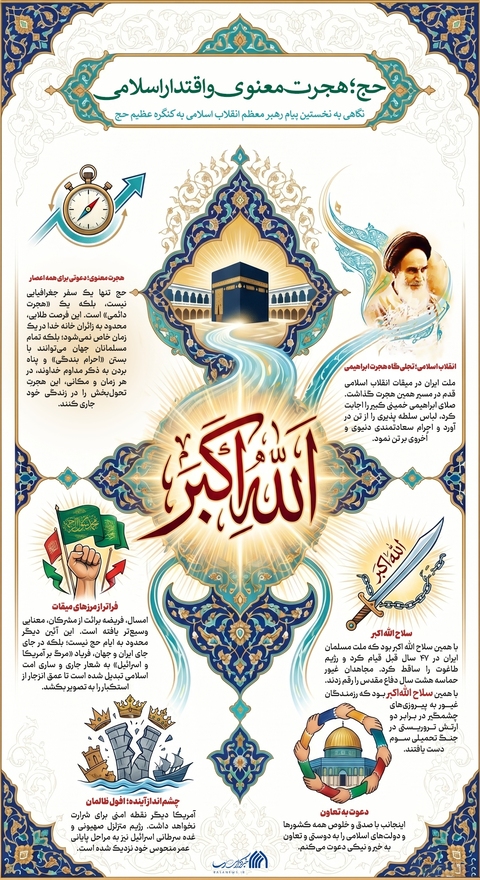 حج؛ هجرت معنوی و اقتدار اسلامی
نگاهی به نخستین پیام رهبر معظم انقلاب اسلامی به کنگره عظیم حج
هجرت معنوی؛ دعوتی برای همه اعصار
حج تنها یک سفر جغرافیایی
نیست، بلکه یک «هجرت
دائمی» است. این فرصت طلایی،
محدود به زائران خانه خدا در یک
زمان خاص نمی‌شود؛ بلکه تمام
مسلمانان جهان می‌توانند با
بستن «احرام بندگی» و پناه
بردن به ذکر مداوم خداوند، در
هر زمان و مکانی، این هجرتِ
تحول‌بخش را در زندگی خود
جاری کنند.
انقلاب اسلامی؛ تجلی‌گاه هجرت ابراهیمی
ملت ایران در میقات انقلاب اسلامی
قدم در مسیر همین هجرت گذاشت.
صلای ابراهیمی خمینی کبیر را اجابت
کرد، لباس سلطه پذیری را از تن در
آورد و احرام سعادتمندی دنیوی و
اُخروی بر تن نمود.
الله اکبر
فراتر از مرزهای میقات
امسال، فریضه برائت از مشرکان، معنایی
وسیع‌تر یافته است. این آئین دیگر
محدود به ایام حج نیست؛ بلکه در جای
جای ایران و جهان، فریاد «مرگ بر آمریکا
و اسرائیل» به شعار جاری و ساری امت
اسلامی تبدیل شده است تا عمق انزجار از
استکبار را به تصویر بکشد.
الله اکبر
سلاح الله اکبر
با همین سلاح الله اکبر بود که ملت مسلمان
ایران در ۴۷ سال قبل قیام کرد و رژیم
طاغوت را ساقط کرد. مجاهدان غیور
حماسه هشت سال دفاع مقدس را رقم زدند.
با همین سلاح الله‌اکبر بود که رزمندگان
غیور به پیروزی‌های
چشمگیر در برابر دو
ارتش تروریستی در
جنگ تحمیلی سوم
دست یافتند.
چشم‌انداز آینده؛ افول ظالمان
آمریکا دیگر نقطه امنی برای شرارت
نخواهد داشت. رژیم متزلزل صهیونی و
غده سرطانی اسرائیل نیز به مراحل پایانی
عمر منحوس خود نزدیک شده است.
دعوت به تعاون
اینجانب با صدق و خلوص همه کشورها
و دولت‌های اسلامی را به دوستی و تعاون
به خیر و نیکی دعوت می‌کنم.
RASANEWS.IR